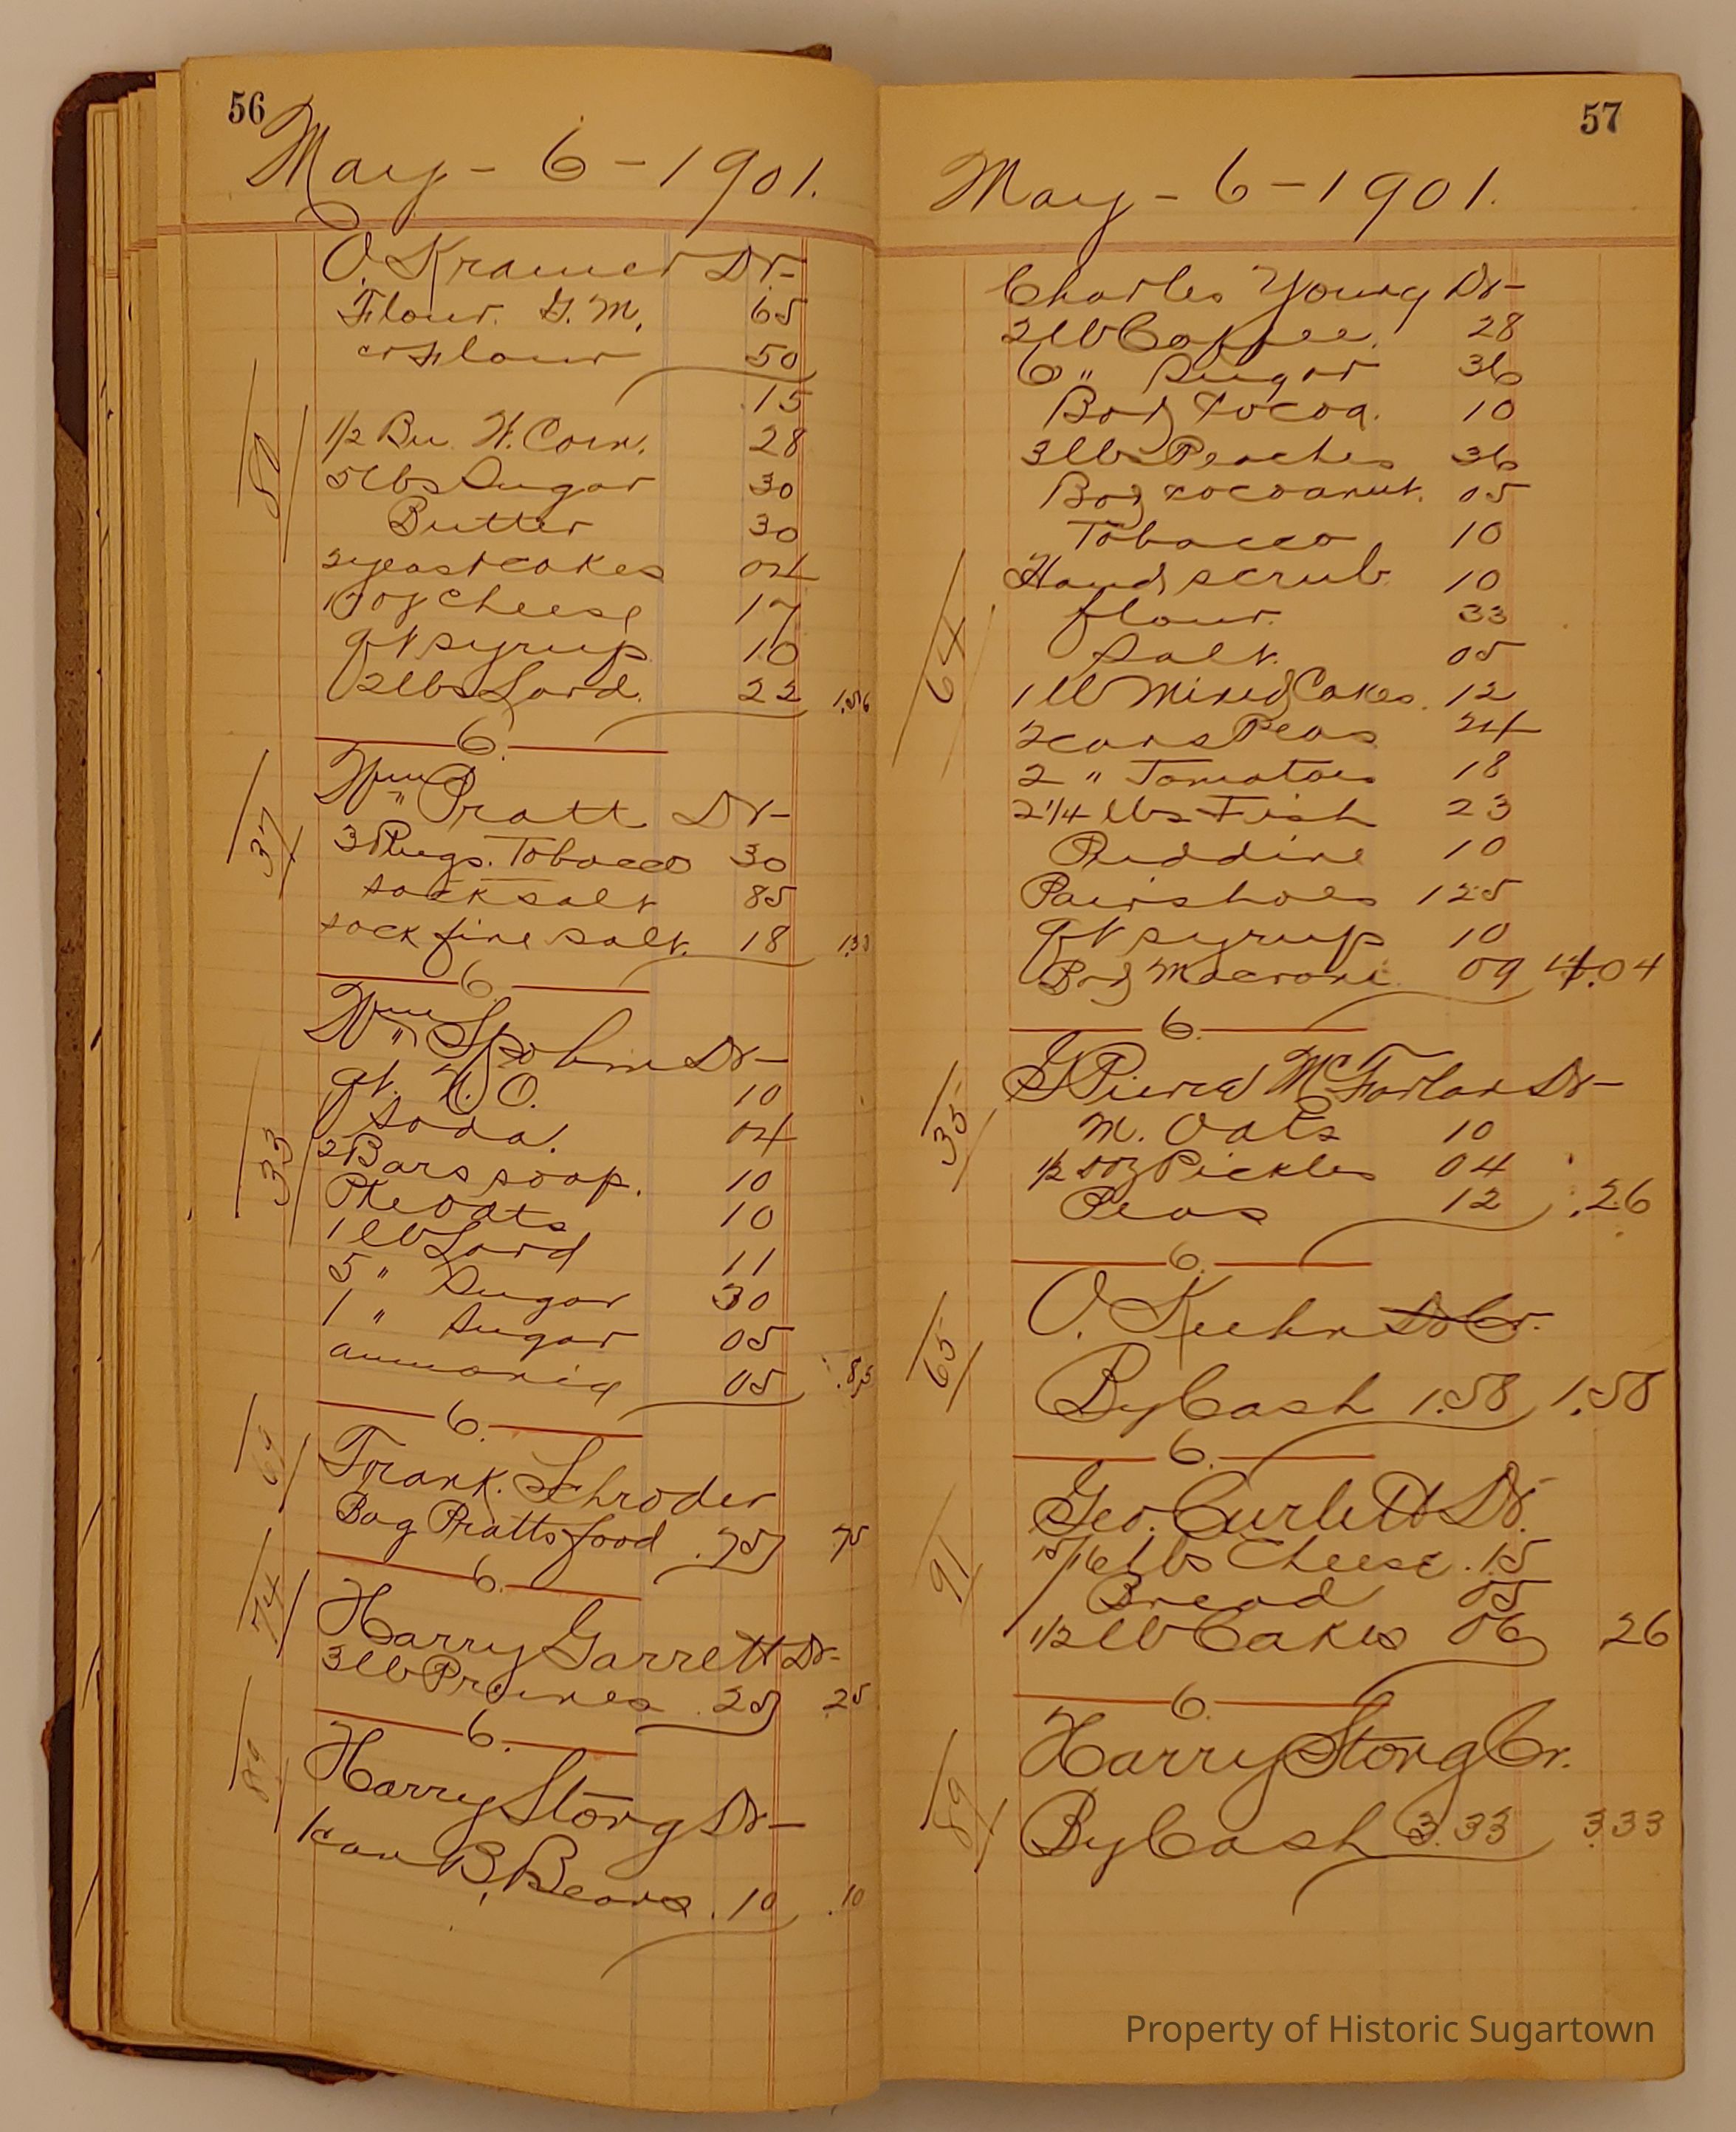 56
May - 6 - 1901.
O. Kramer Dr-
Flour. G. M. 65
cr Flour 50
.15
1/2 Bu. W. Corn. 28
5 lbs Sugar 30
Butter 30
2 yeast cakes 04
oz cheese 17
qt syrup 10
2 lbs Lard. 22 1.56
6.
37
Wm Pratt Dr-
3 Plugs. Tobacco 30
sack salt 85
sack fine salt. 18 1.33
6.
33
Wm Spohn Dr-
qt. N. O. 10
Soda. 04
2 Bars soap. 10
Pkg Oats 10
1 lb Lard 11
5 " Sugar 30
1 " Sugar 05
ammonia 05 .85
6.
69
Frank. Schroder
Bag Pratts food .75 .75
6.
74
Harry Garrett Dr-
3 lb Prunes .25 .25
6.
89
Harry Stong Dr-
1 can B. Beans .10 .10
57
May - 6 - 1901.
Charles Young Dr-
2 lb Coffee. 28
6 " Sugar 36
Box Cocoa. 10
3 lbs Peaches 36
Box cocoanut. 05
Tobacco 10
Hand scrub 10
64
flour. 33
Salt. 05
1 lb Mixed Cakes. 12
2 cans Peas 24
2 " Tomatoes 18
2 1/4 lbs Fish 23
Puddine 10
Pair shoes 125
qt syrup 10
Box Macroni. 09 4.04
6.
35
G Pierce McFarlan Dr-
M. Oats 10
1/2 doz Pickles 04
Peas 12 .26
6.
65
O. Keehn Dr Cr.
By Cash 1.58 1.58
6.
91
Geo. Curlett Dr.
15/16 lbs Cheese .15
Bread 05
1/2 lb Cakes 06 26
6.
89
Harry Stong Cr.
By Cash 3.33 3.33
Property of Historic Sugartown